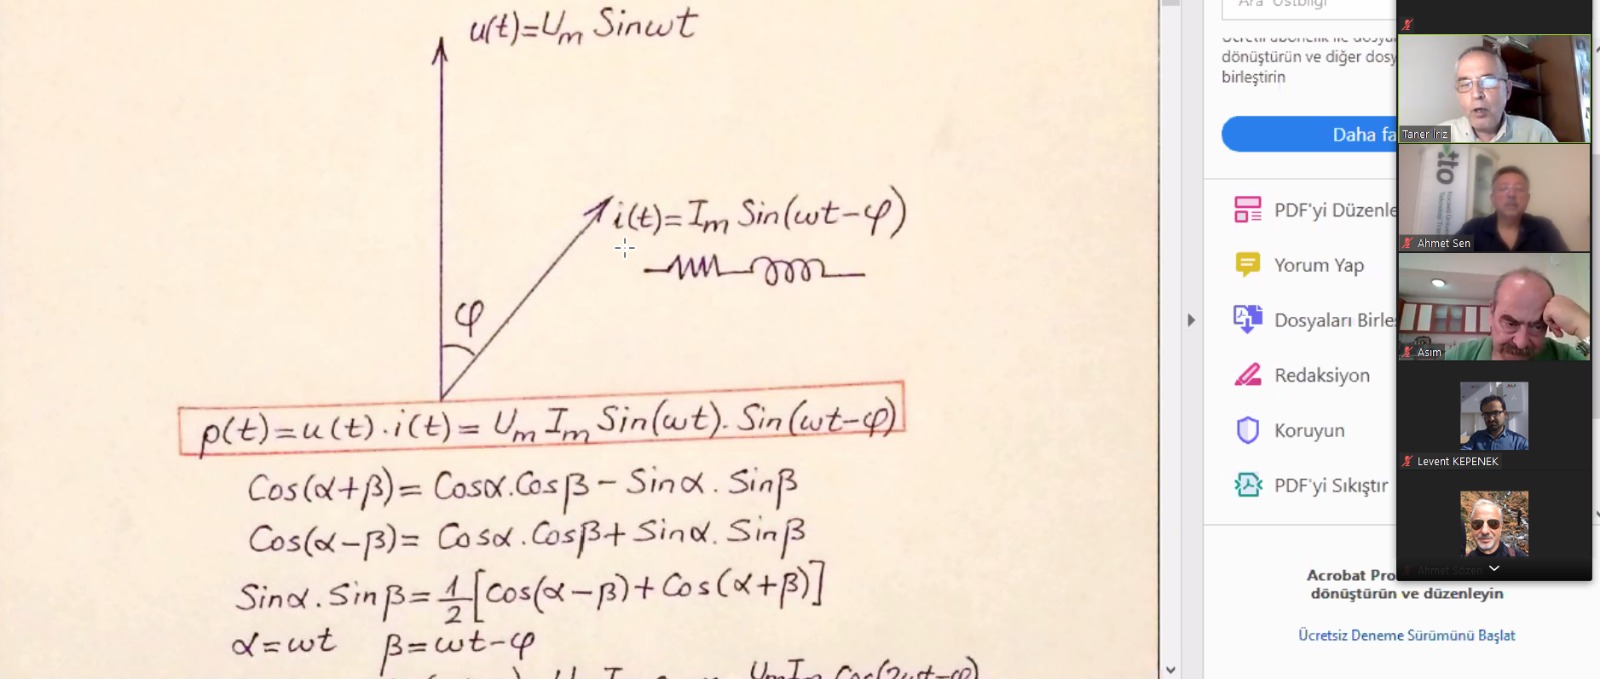 u(t)=Um Sinωt
i(t)=Im Sin(ωt-φ)
φ
p(t)=u(t).i(t)= Um Im Sin(ωt). Sin(ωt-φ)
Cos(α+β)= Cosα.Cosβ - Sinα. Sinβ
Cos(α-β)= Cosα.Cosβ+ Sinα. Sinβ
Sinα. Sinβ=1/2[Cos(α-β)+Cos(α+β)]
α=ωt β=ωt-φ
UmIm Cos(2ωt-φ)
dönüştürün ve diğer dosy
birleştirin
Daha fa
PDF'yi Düzenle
Yorum Yap
Dosyaları Birle
Redaksiyon
Koruyun
PDF'yi Sıkıştır
Acrobat Pro
dönüştürün ve düzenleyin
Ücretsiz Deneme Sürümünü Başlat
Taner İriz
Ahmet Sen
Asım
Levent KEPENEK
Ahmet Sözen